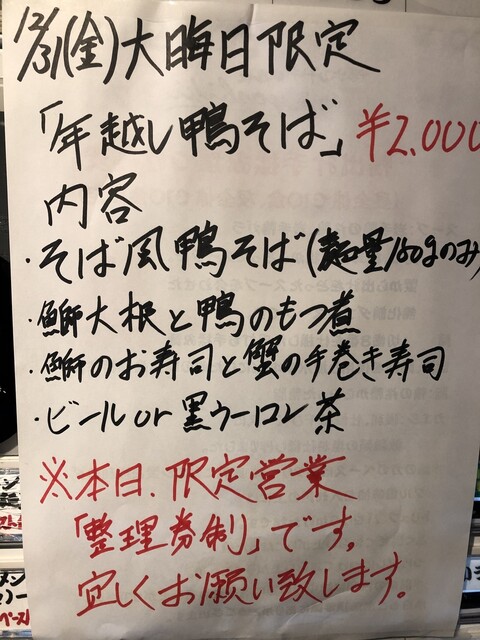 12/31(金)大晦日限定
「年越し鴨そば」¥2,000
内容
・そば風鴨そば(麺量150gのみ)
・鰤大根と鴨のもつ煮
・鰤のお寿司と蟹の手巻き寿司
・ビールor黒ウーロン茶
※本日、限定営業
「整理券制」です。
宜しくお願い致します。